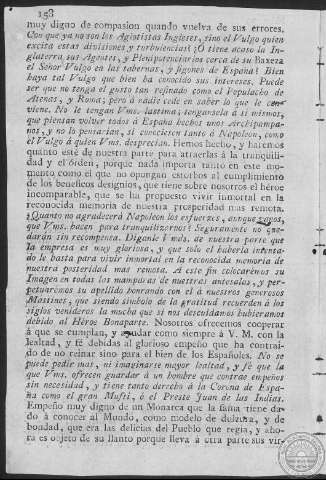 158
muy digno de compasion quando vuelva de sus errores.
Con que ya no son los Agiotistas Ingleses, sino el Vulgo quien
excita estas divisiones y turbulencias? ¿O tiene acaso la In-
glaterra sus Agentes, y Plenipotenciarios cerca de su Baxeza
el Señor Vulgo en las tabernas, y figones de España? Bien
haya tal Vulgo que bien ha conocido sus intereses. Puede
ser que no tenga el gusto tan refinado como el Populacho de
Atenas, y Roma, pero á nadie cede en saber lo que le con-
viene. No le tengan Vms. lastima; tengansela á sí mismos,
que piensan volver todos á España hechos unos Archipampa-
nos, y no lo pensarian, si conociesen tanto á Napoleon, como
el Vulgo á quien Vms. desprecian. Hemos hecho, y haremos
quanto esté de nuestra parte para atraerlas á la tranquili-
dad y el órden, porque nada importa tanto en este mo-
mento como el que no opongan estorbos al cumplimiento
de los beneficos designios, que tiene sobre nosotros el héroe
incomparable, que se ha propuesto vivir inmortal en la
reconocida memoria de nuestra prosperidad mas remota.
¿Quanto no agradecerá Napoleon los esfuerzos, aunque vanos,
que Vms. hacen para tranquilizarnos? Seguramente no que-
darán sin recompensa. Diganle Vmds. de nuestra parte que
la empresa es muy gloriosa, y que solo el haberla intenta-
do le basta para vivir inmortal en la reconocida memoria de
nuestra posteridad mas remota. A este fin colocarémos su
Imagen en todas las mamparas de nuestras antesalas, y per-
petuarémos su apellido honrando con él á nuestros generosos
Mastines, que siendo simbolo de la gratitud recuerden á los
siglos venideros la mucha que si nos descuidamos hubieramos
debido al Héroe Bonaparte. Nosotros ofrecemos cooperar
á que se cumplan, y ayudar como siempre á V. M. con la
lealtad, y fé debidas al glorioso empeño que ha contraí-
do de no reinar sino para el bien de los Españoles. No se
puede pedir mas, ni imaginarse mayor lealtad, y fé que la
que Vms. ofrecen guardar á un hombre que contrae empeños
sin necesidad, y tiene tanto derecho á la Corona de Espa-
ña como el gran Mufti, ó el Preste Juan de las Indias.
Empeño muy digno de un Monarca que la fama tiene da-
do á conocer al Mundo, como modelo de dulzura, y de
bondad, que era las delicias del Pueblo que regia, y aho-
ra es objeto de su llanto porque lleva á otra parte sus vir-